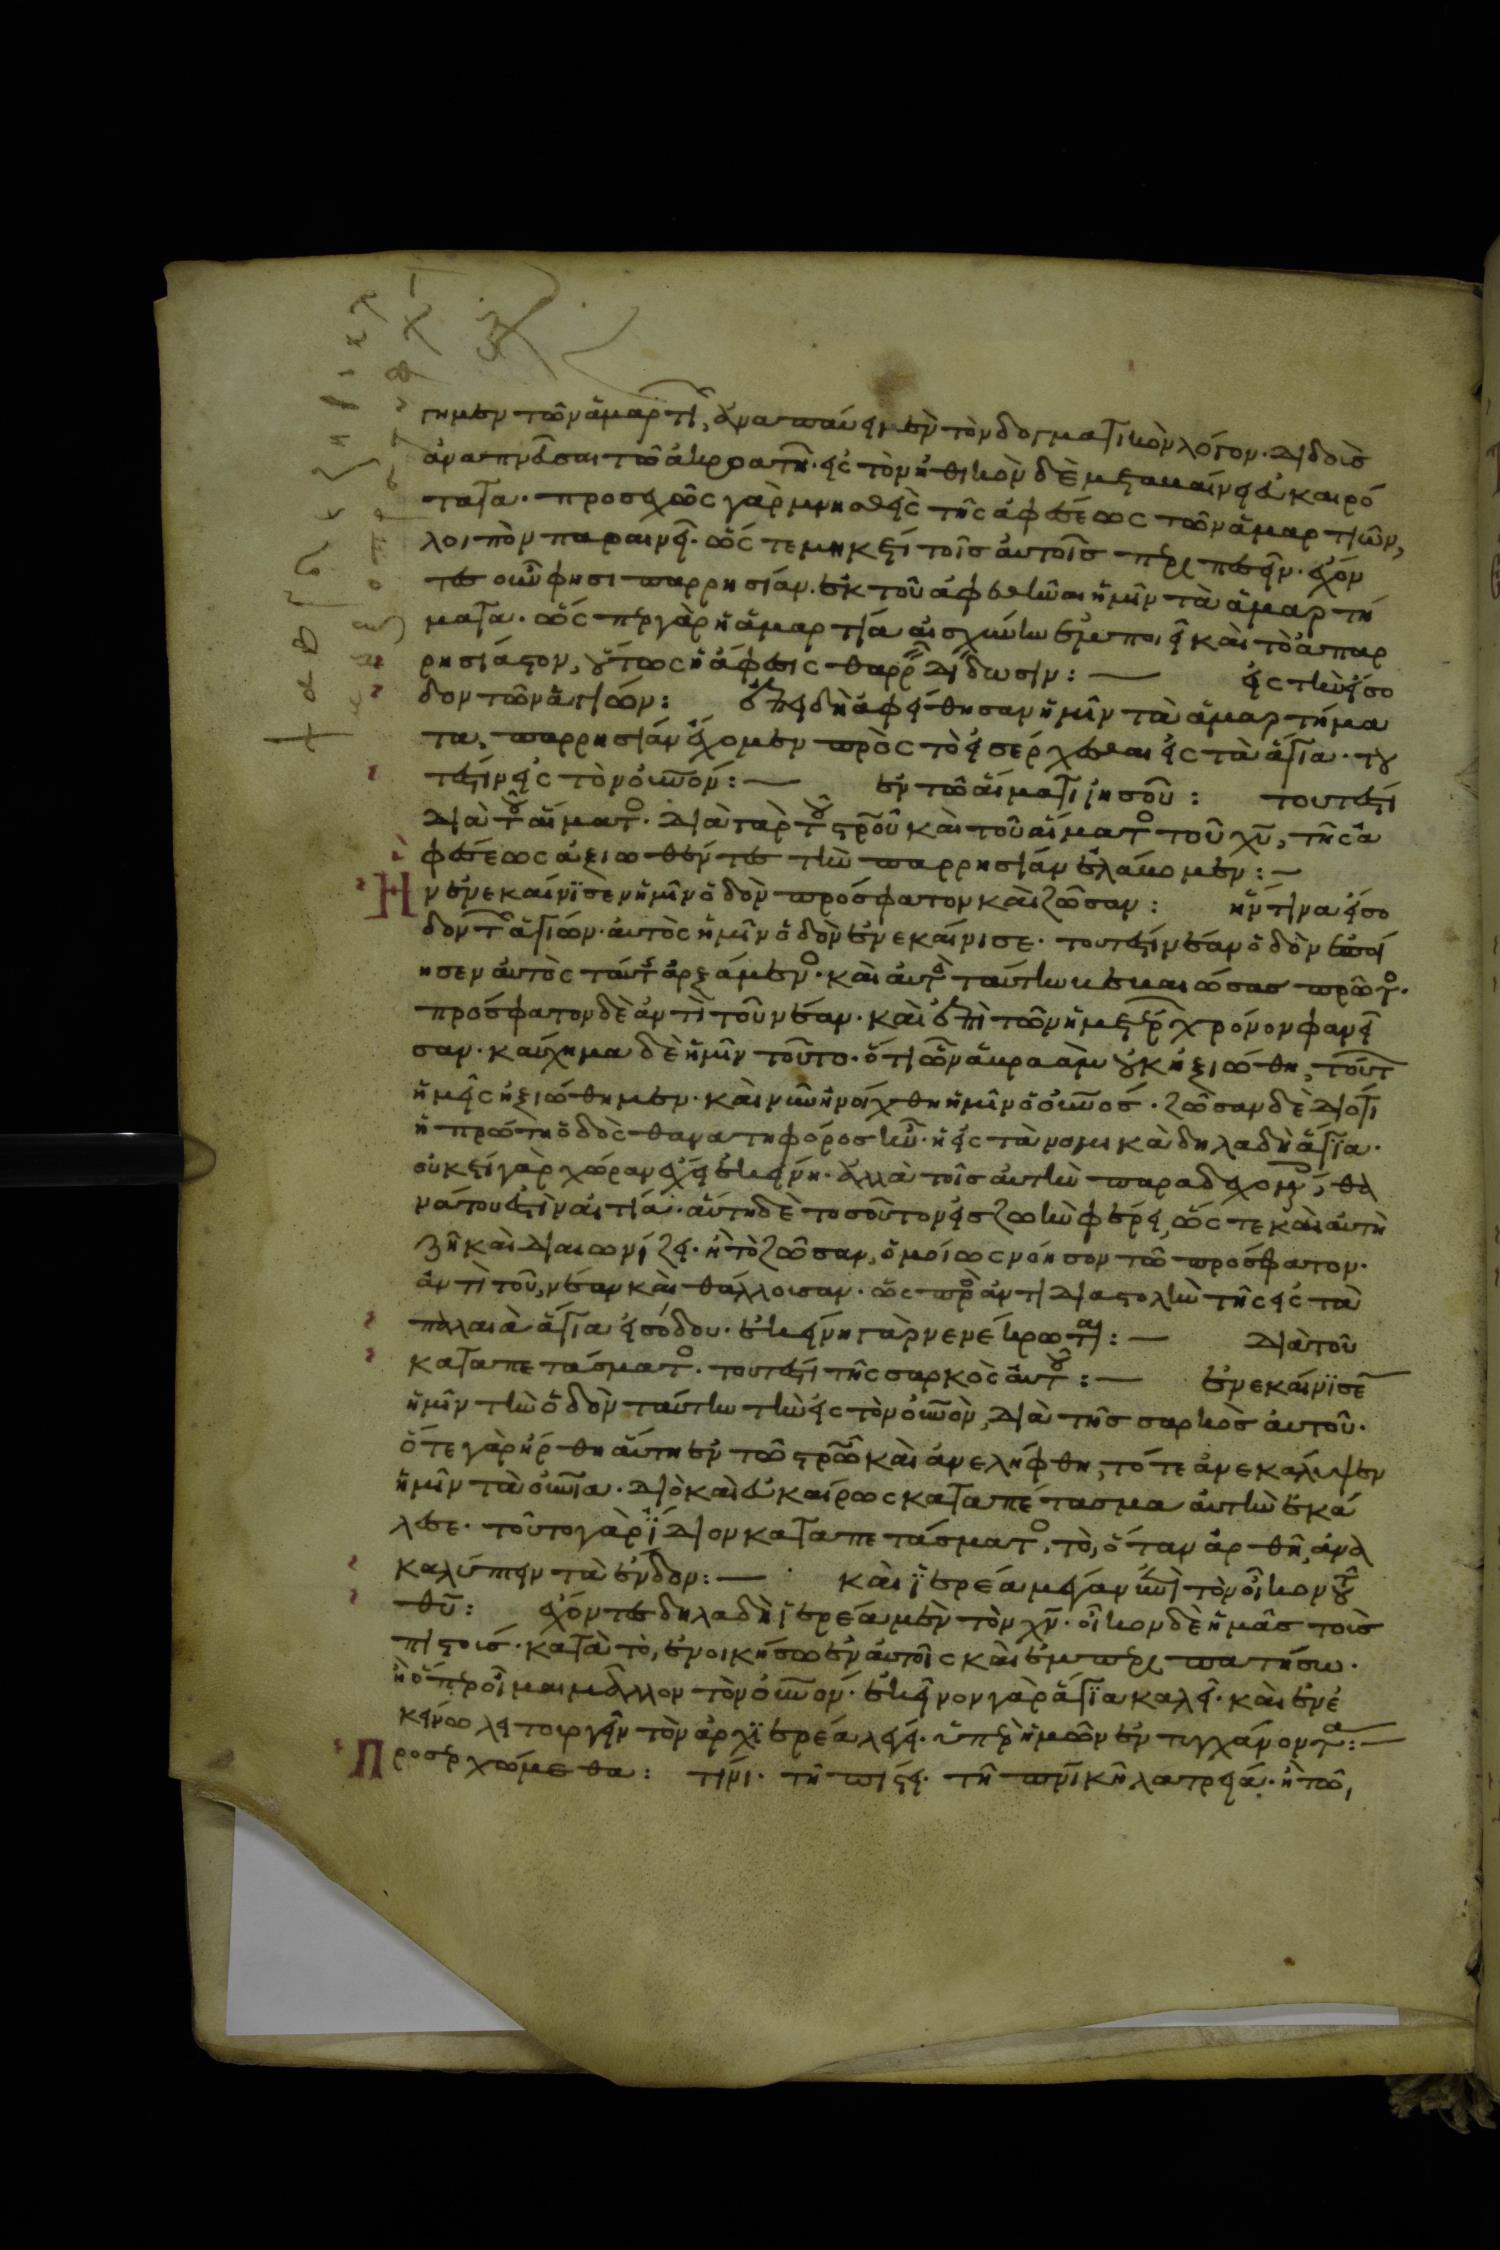 τημεν τῶν ἁμαρτι, ἀναπαύει μὲν τὸν δογματικὸν λόγον. διδοὺς
ἀναπνεῦσαι τῶ ἀκροατῆ. εἰς τὸν ἠθικὸν δὲ μεταβαίνει εὐκαιρό
τατα. προσεχῶς γὰρ μνησθεὶς τῆς ἀφέσεως τῶν ἁμαρτιῶν,
λοιπὸν παραινεῖ. ὥστε μηκέτι τοῖς αὐτοῖς περιπεσεῖν. ἔχον
τες οὖν φησι παρρησίαν. ἐκ τοῦ ἀφεθῆναι ἡμῖν τὰ ἁμαρτή
ματα. ὥσπερ γὰρ ἡ ἁμαρτία αἰσχύνην ἐμποιεῖ καὶ τὸ ἀπαρ
ρησίαστον, οὕτως ἡ ἄφεσις θαρρ δίδωσιν: εἰς τὴν εἴσο
δον τῶν ἁγίων: ἐπειδὴ ἀφείθησαν ἡμῖν τὰ ἁμαρτήμα
τα, παρρησίαν ἔχομεν πρὸς τὸ εἰσέρχεσθαι εἰς τὰ ἅγια. του
τέστιν εἰς τὸν οὐνον: ἐν τῶ αἵματι ἰησοῦ: τουτέστι
διὰ τοῦ αἵματος. διὰ γὰρ τοῦ στροῦ καὶ τοῦ αἵματος τοῦ χυ, τῆς ἀ
φέσεως ἀξιωθέντες τὴν παρρησίαν ἐλάβομεν:
Ην ἐνεκαίνισεν ἡμῖν ὁδὸν πρόσφατον καὶ ζῶσαν: ἥντινα εἴσο
δον τῶν ἁγίων. αὐτὸς ἡμῖν ὁδὸν ἐνεκαίνισε. τουτέστιν νέαν ὁδὸν ἐποί
ησεν αὐτὸς ταύτης ἀρξάμενος. καὶ αὐτὸς ταύτην βεβαιώσας πρῶτος.
πρόσφατον δὲ ἀντὶ τοῦ νέαν. καὶ ἐπὶ τῶν ἡμετέρ χρόνων φανεῖ
σαν. καύχημα δὲ ἡμῖν τοῦτο. ὅτι ὧν ἀβραὰμ οὐκ ἠξιώθη, τούτ
ἡμεῖς ἠξιώθημεν. καὶ νῦν ἠνοίχθη ἡμῖν ὁ οὐνος. ζῶσαν δὲ διότι
ἡ πρώτη ὁδὸς θανατηφόρος ἦν. ἡ εἰς τὰ νομικὰ δηλαδὴ ἅγια.
οὐκέτι γὰρ χώραν ἔχει ἐκείνη. ἀλλὰ τοῖς αὐτὴν παραδεχομ, θα
νάτου ἐστὶν αἰτία. αὕτη δὲ τοσοῦτον εἰς ζωὴν φέρει, ὥστε καὶ αὐτὴ
ζῆ καὶ διαιωνίζει. ἢ τὸ ζῶσαν, ὁμοίως νόησον τῶ πρόσφατον.
ἀντὶ τοῦ, νέαν καὶ θάλλουσαν. ὡς πρὸς ἀντιδιαστολὴν τῆς εἰς τὰ
παλαιὰ ἅγια εἰσόδου. ἐκείνη γὰρ νενέκρωται: διὰ τοῦ
καταπετάσματος. τουτέστι τῆς σαρκὸς αὐτοῦ: ἐνεκαίνισε
ἡμῖν τὴν ὁδὸν ταύτην τὴν εἰς τὸν οὐνον, διὰ τῆς σαρκὸς αὐτοῦ.
ὅτε γὰρ ἤρθη αὕτη ἐν τῶ στρῶ καὶ ἀνελήφθη, τότε ἀνεκάλυψεν
ἡμῖν τὰ οὐνια. διὸ καὶ εὐκαίρως καταπέτασμα αὐτὴν ἐκά
λεσε. τοῦτο γὰρ ἴδιον καταπετάσματος, τὸ, ὅταν ἀρθῆ, ἀνα
καλύπτειν τὰ ἔνδον: καὶ ἱερέα μέγαν ἐπὶ τὸν οἶκον τοῦ
θυ: ἔχοντες δηλαδὴ ἱερέα μὲν τὸν χν. οἶκον δὲ ἡμᾶς τοὺς
πιστούς. κατὰ τὸ, ἐνοικήσω ἐν αὐτοῖς καὶ ἐμπεριπατήσω.
ἢ ὅπερ οἶμαι μᾶλλον τὸν οὐνον. ἐκεῖνον γὰρ ἅγια καλεῖ. καὶ ἐν ἐ
κείνω λειτουργεῖν τὸν ἀρχιερέα λέγει. ὑπὲρ ἡμῶν ἐντυγχάνοντα:
Προσερχώμεθα: τίνι. τῆ πίστει. τῆ πνικῆ λατρεία. ἢ τῶ,